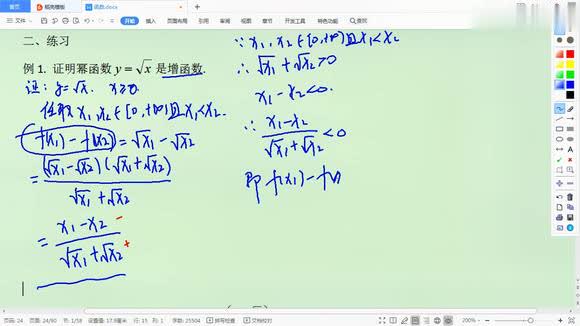 首页 稻壳模板 函数.docx
开始 插入 页面布局 引用 审阅 视图 章节 开发工具 特色功能
二、练习
例 1. 证明幂函数 y=√x 是增函数.
证: y=√x. x≥0.
任取 x₁, x₂ ∈ [0,+∞)且x₁<x₂.
f(x₁) - f(x₂) = √x₁ - √x₂
= (√x₁-√x₂)(√x₁+√x₂) / √x₁+√x₂
= x₁-x₂ - / √x₁+√x₂ +
∵ x₁, x₂ ∈ [0,+∞)且x₁<x₂
∴ √x₁+√x₂>0
x₁-x₂<0.
∴ x₁-x₂ / √x₁+√x₂ <0
即 f(x₁)-f(
页码: 24 页面: 24/90 节: 1/58 设置值: 17.8厘米 行: 15 列: 1 字数: 25504 拼写检查 文档校对 200%